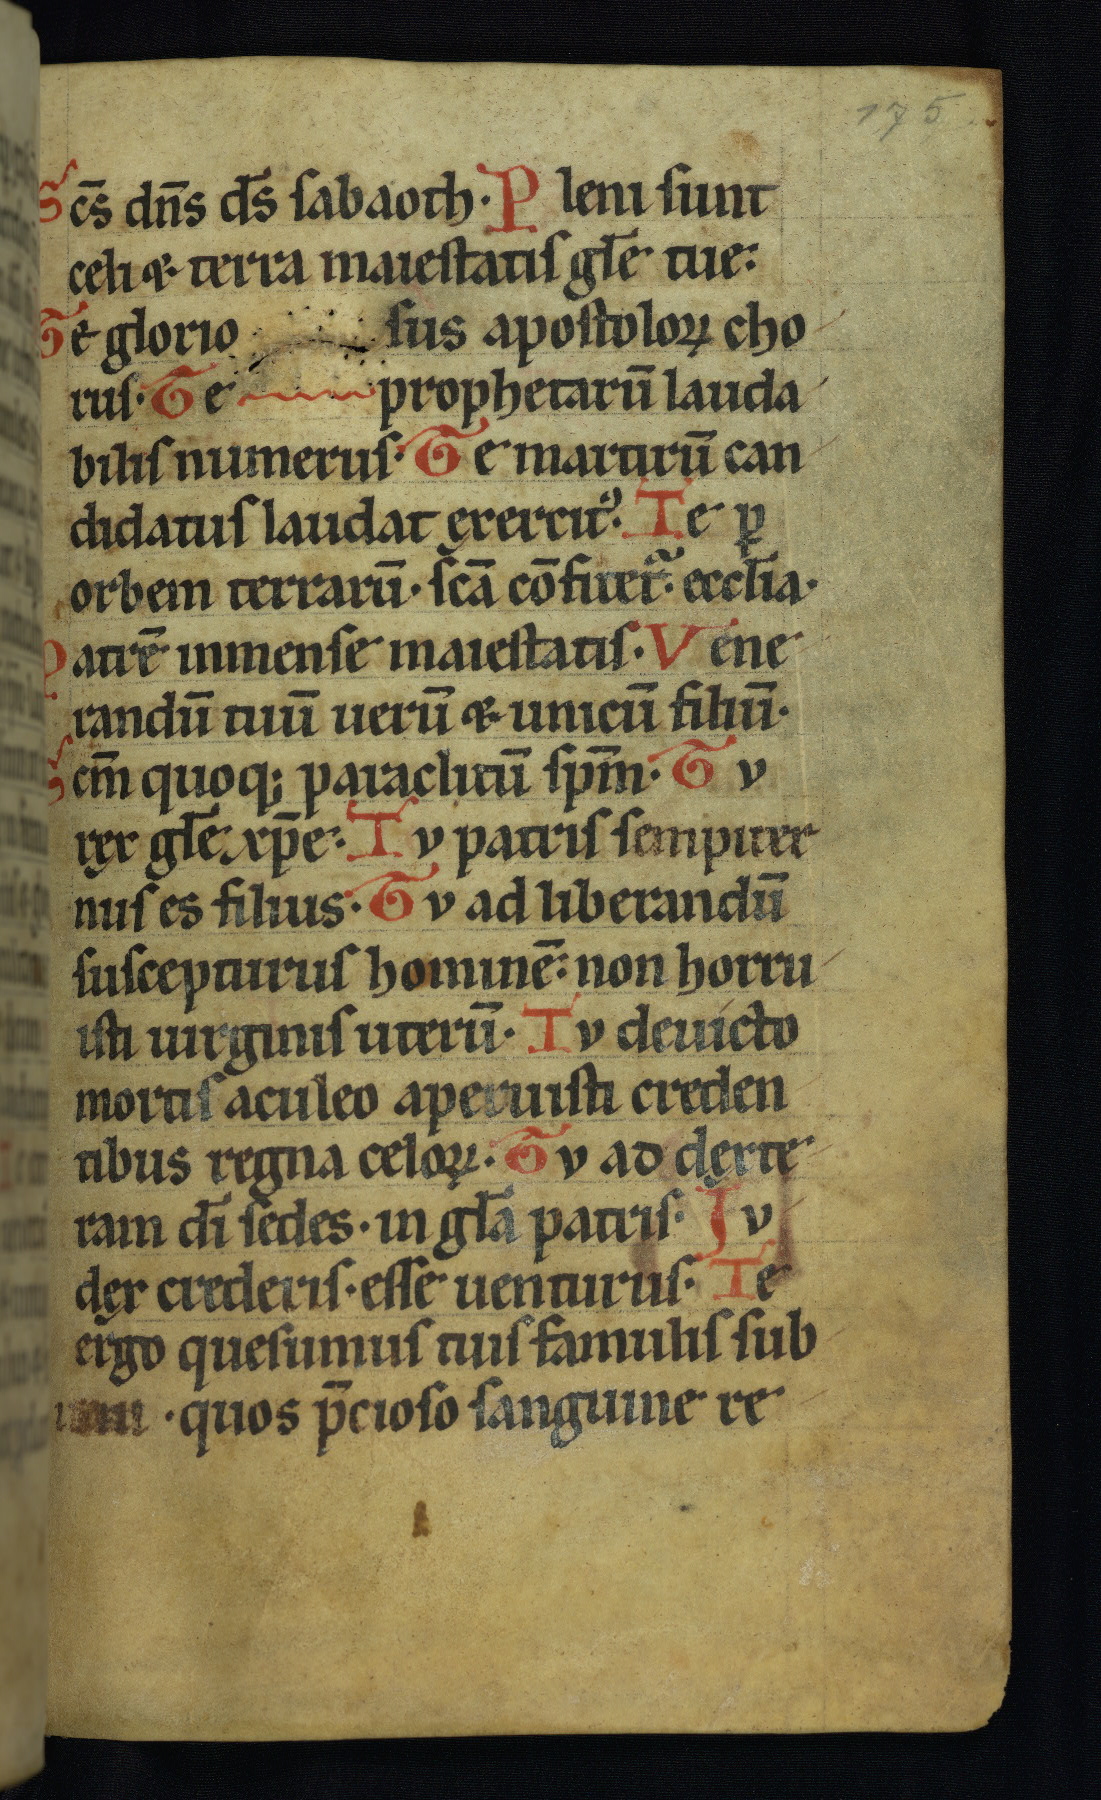 175
Sc̄s dn̄s d̄s sabaoth. Pleni sunt
celi & terra maiestatis gl̄e tue:
Te glorio sus apostoloꝝ cho
rus. Te prophetarū lauda
bilis numerus. Te martirū can
didatus laudat exercitꝰ. Te ꝑ
orbem terrarū. sc̄a cōfitet᷑ eccl̄ia.
Patrē inmense maiestatis. Vene
randū tuū uerū & unicū filiū.
Sc̄m quoqꝫ paraclitū sp̄m. Tv
rex gl̄e xp̄e. Tv patris sempiter
nus es filius. Tv ad liberandū
suscepturus hominē: non horru
isti uirginis uterū. Tv deuicto
mortis aculeo aperuisti creden
tibus regna celoꝝ. Tv ad dexte
ram d̄i sedes. in gl̄a patris. Iv
dex crederis. esse uenturus. Te
ergo quesumus tuis famulis sub
ueni . quos p̄cioso sanguine re